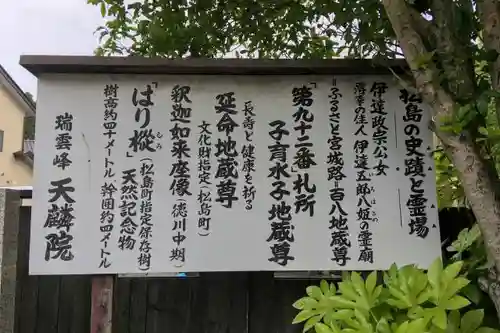 松島の史蹟と霊場
伊達政宗公女
落幸の佳人 伊達五郎八姫の霊廟
いろは
=ふるさと宮城路=百八地蔵尊
「第九十二番札所
子育水子地蔵尊
長寿と健康を祈る
延命地蔵尊
文化財指定(松島町)
釈迦如来座像(徳川中期)
「はり樅」(松島町指定保存樹)
もみ
天然記念物
樹高約四十メートル 幹囲約四メートル
瑞雲峰 天麟院